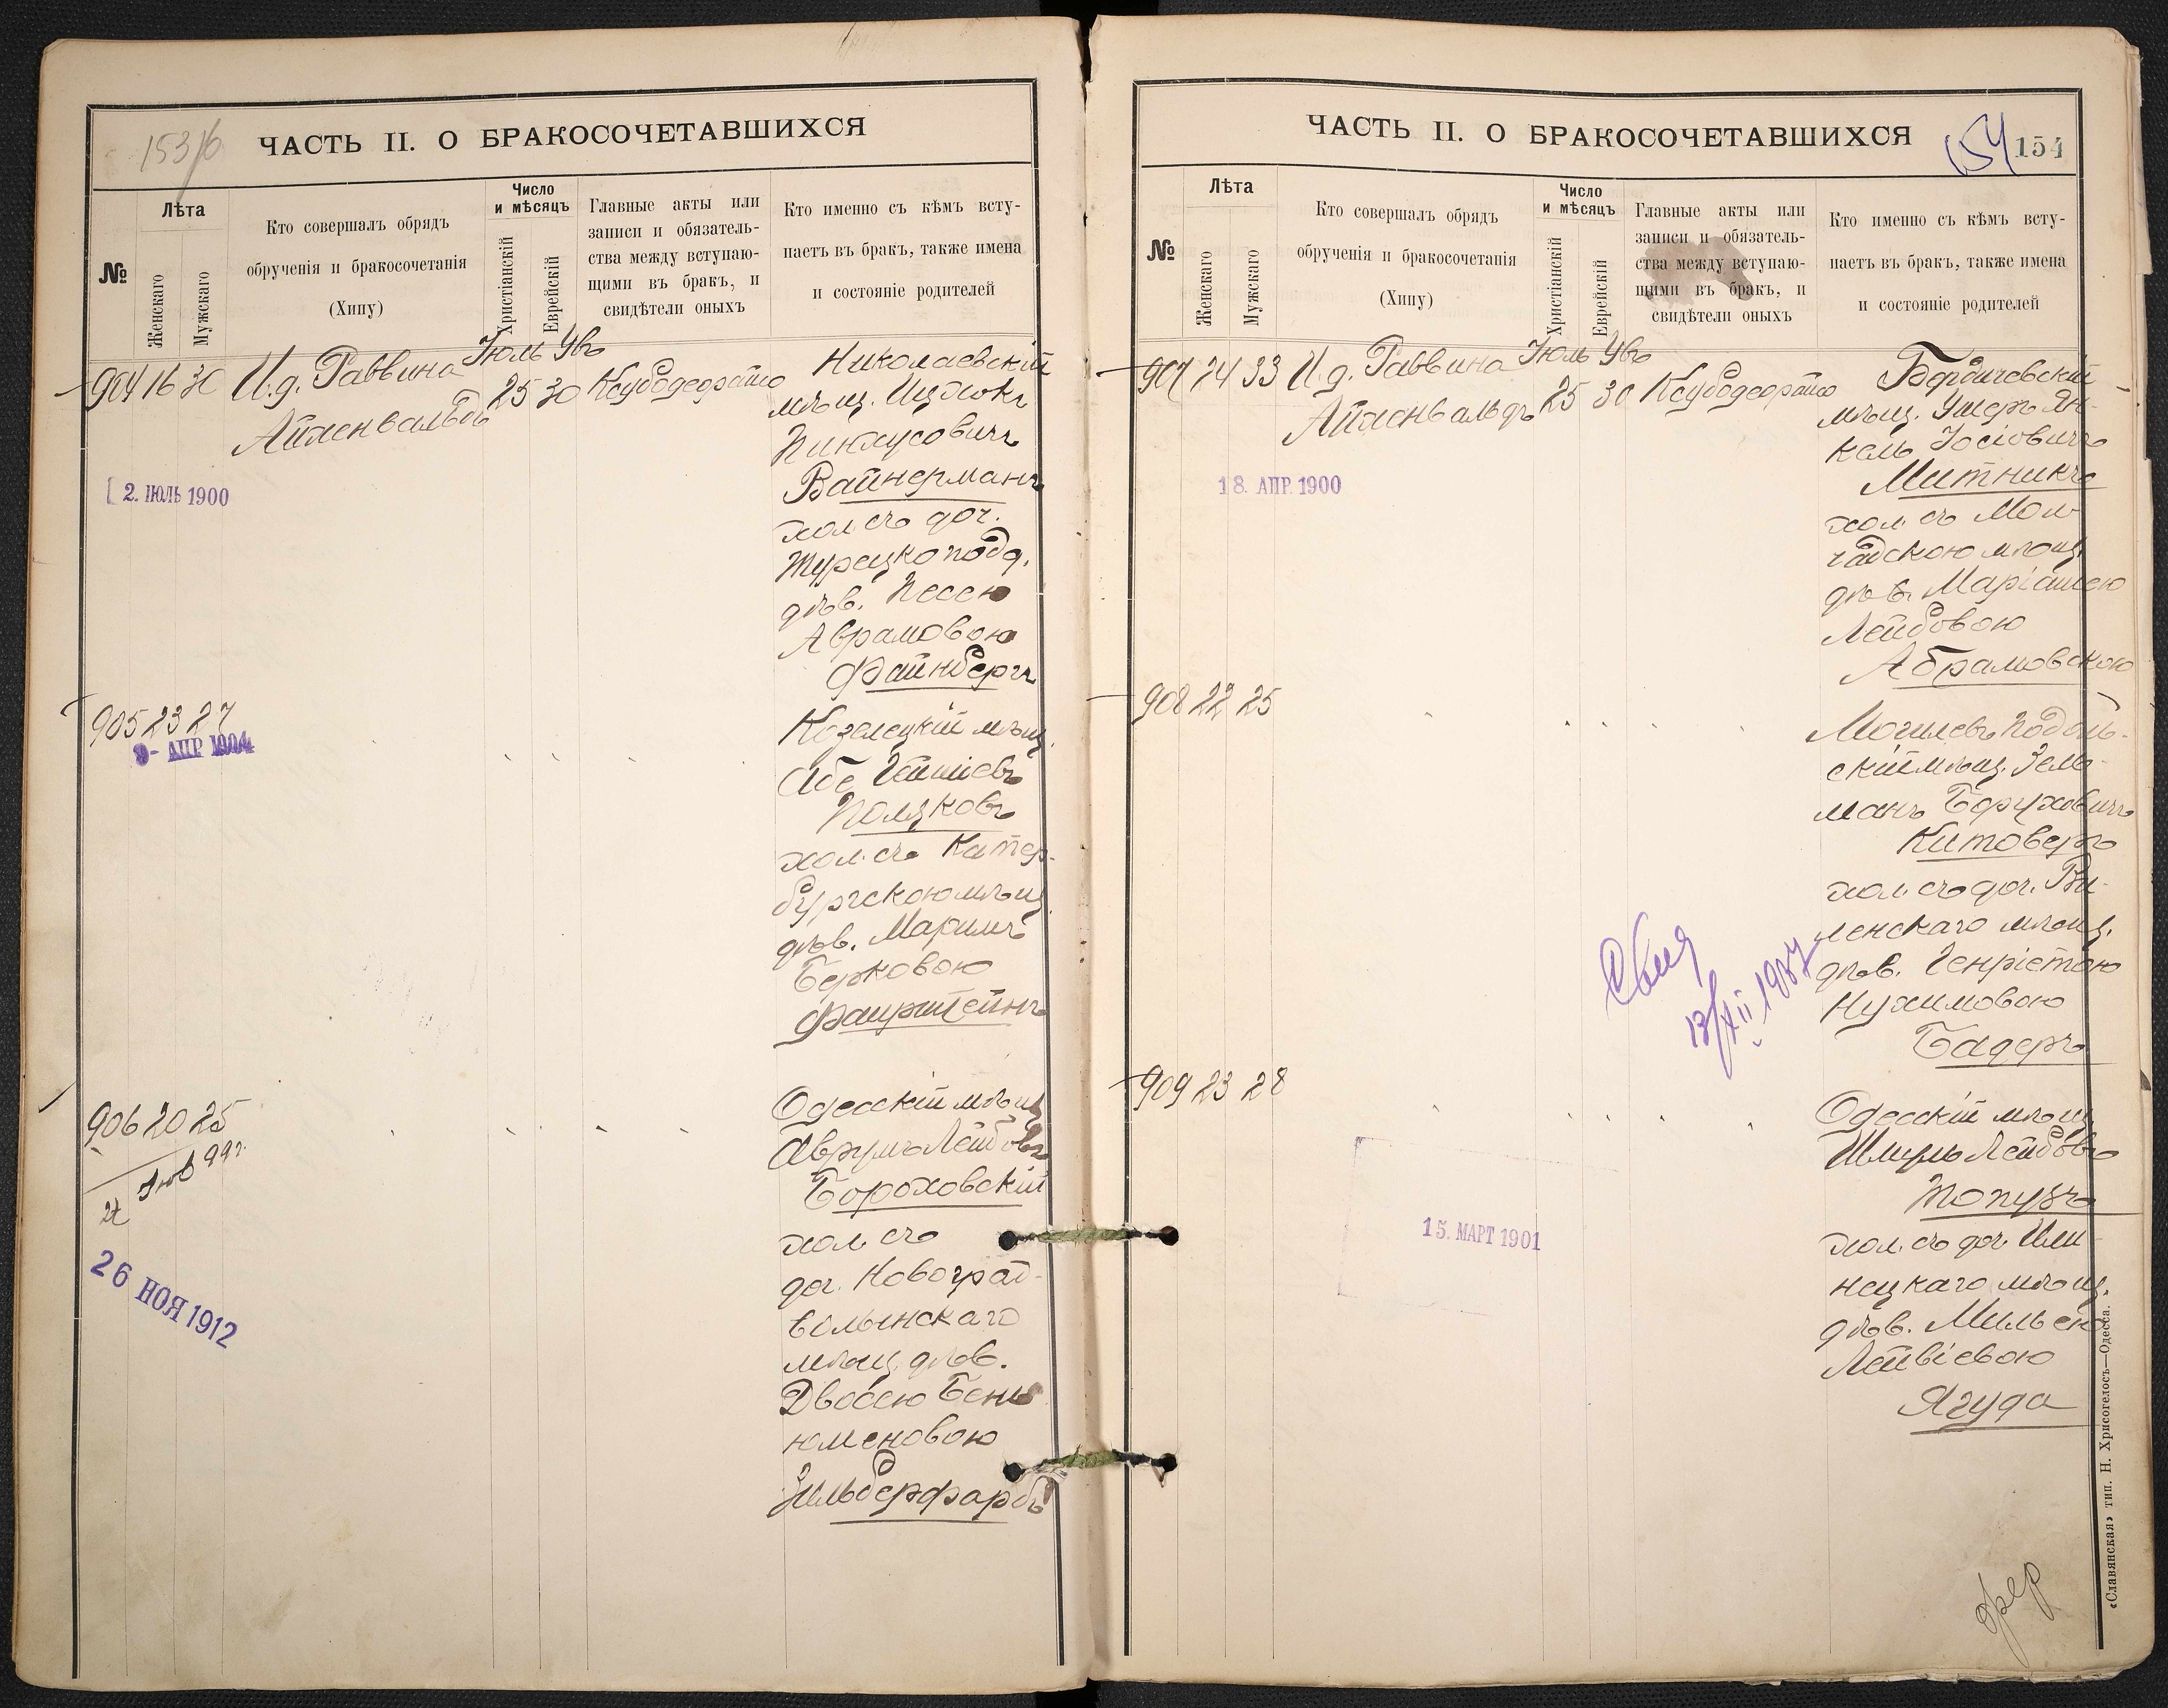 153/б
ЧАСТЬ II. О БРАКОСОЧЕТАВШИХСЯ
№
Лѣта
Женскаго
Мужскаго
Кто совершалъ обрядъ
обрученія и бракосочетанія
(Хипу)
Число
и мѣсяцъ
Христіанскій
Еврейскій
Главные акты или
записи и обязатель-
ства между вступаю-
щими въ бракъ, и
свидѣтели оныхъ
Кто именно съ кѣмъ всту-
паетъ въ бракъ, также имена
и состояніе родителей
904 16 30 И.д. Раввина
Айхенвальдъ
Іюль Увъ
25 30
Николаевскій
мѣщ. Ицхокъ
Пинкусовичъ
Вайнерманъ
хол. съ доч.
Турецкоподд.
дѣв. Песею
Аврамовою
Файнбергъ
2. ІЮЛЬ 1900
905 23 27
9- АПР 1904
Козелецкій мѣщ.
Абе
Поляковъ
хол. съ Катер-
бургскою мѣщ.
дѣв. Маримъ
Берковою
Фаирштейнъ
906 20 25
26 НОЯ 1912
Одесскій мѣщ.
Аврумъ Лейбовъ
Бороховскій
хол. съ
доч. Новоград-
волынскаго
мѣщ. дѣв.
Двосею Бень
юменовою
Зильберфарбъ
ЧАСТЬ II. О БРАКОСОЧЕТАВШИХСЯ
154
154
№
Лѣта
Женскаго
Мужскаго
Кто совершалъ обрядъ
обрученія и бракосочетанія
(Хипу)
Число
и мѣсяцъ
Христіанскій
Еврейскій
Главные акты или
записи и обязатель-
ства между вступаю-
щими въ бракъ, и
свидѣтели оныхъ
Кто именно съ кѣмъ всту-
паетъ въ бракъ, также имена
и состояніе родителей
907 24 33 И.д. Раввина
Айхенвальдъ
Іюль Увъ
25 30
Бердичевскій
мѣщ. Ушеръ Ян-
кель Іосіовичъ
Митникъ
хол. съ Мол-
чадскою мѣщ.
дѣв. Маріашею
Лейбовою
Абрамовскою
18. АПР. 1900
908 22 25
Могилевъ Подоль-
скій мѣщ. Зель-
манъ Боруховичъ
Китоверъ
хол. съ доч. Ви-
ленскаго мѣщ.
дѣв. Генріетою
Нухимовою
Бадеръ
13/XII 1937
909 23 28
15. МАРТ 1901
Одесскій мѣщ.
Шмуль Лейбовъ
Топузъ
хол. съ доч. Или-
нецкаго мѣщ.
дѣв. Мильею
Лейвіевою
Ягуда
«Славянская» тип. Н. Хрисогелосъ—Одесса.